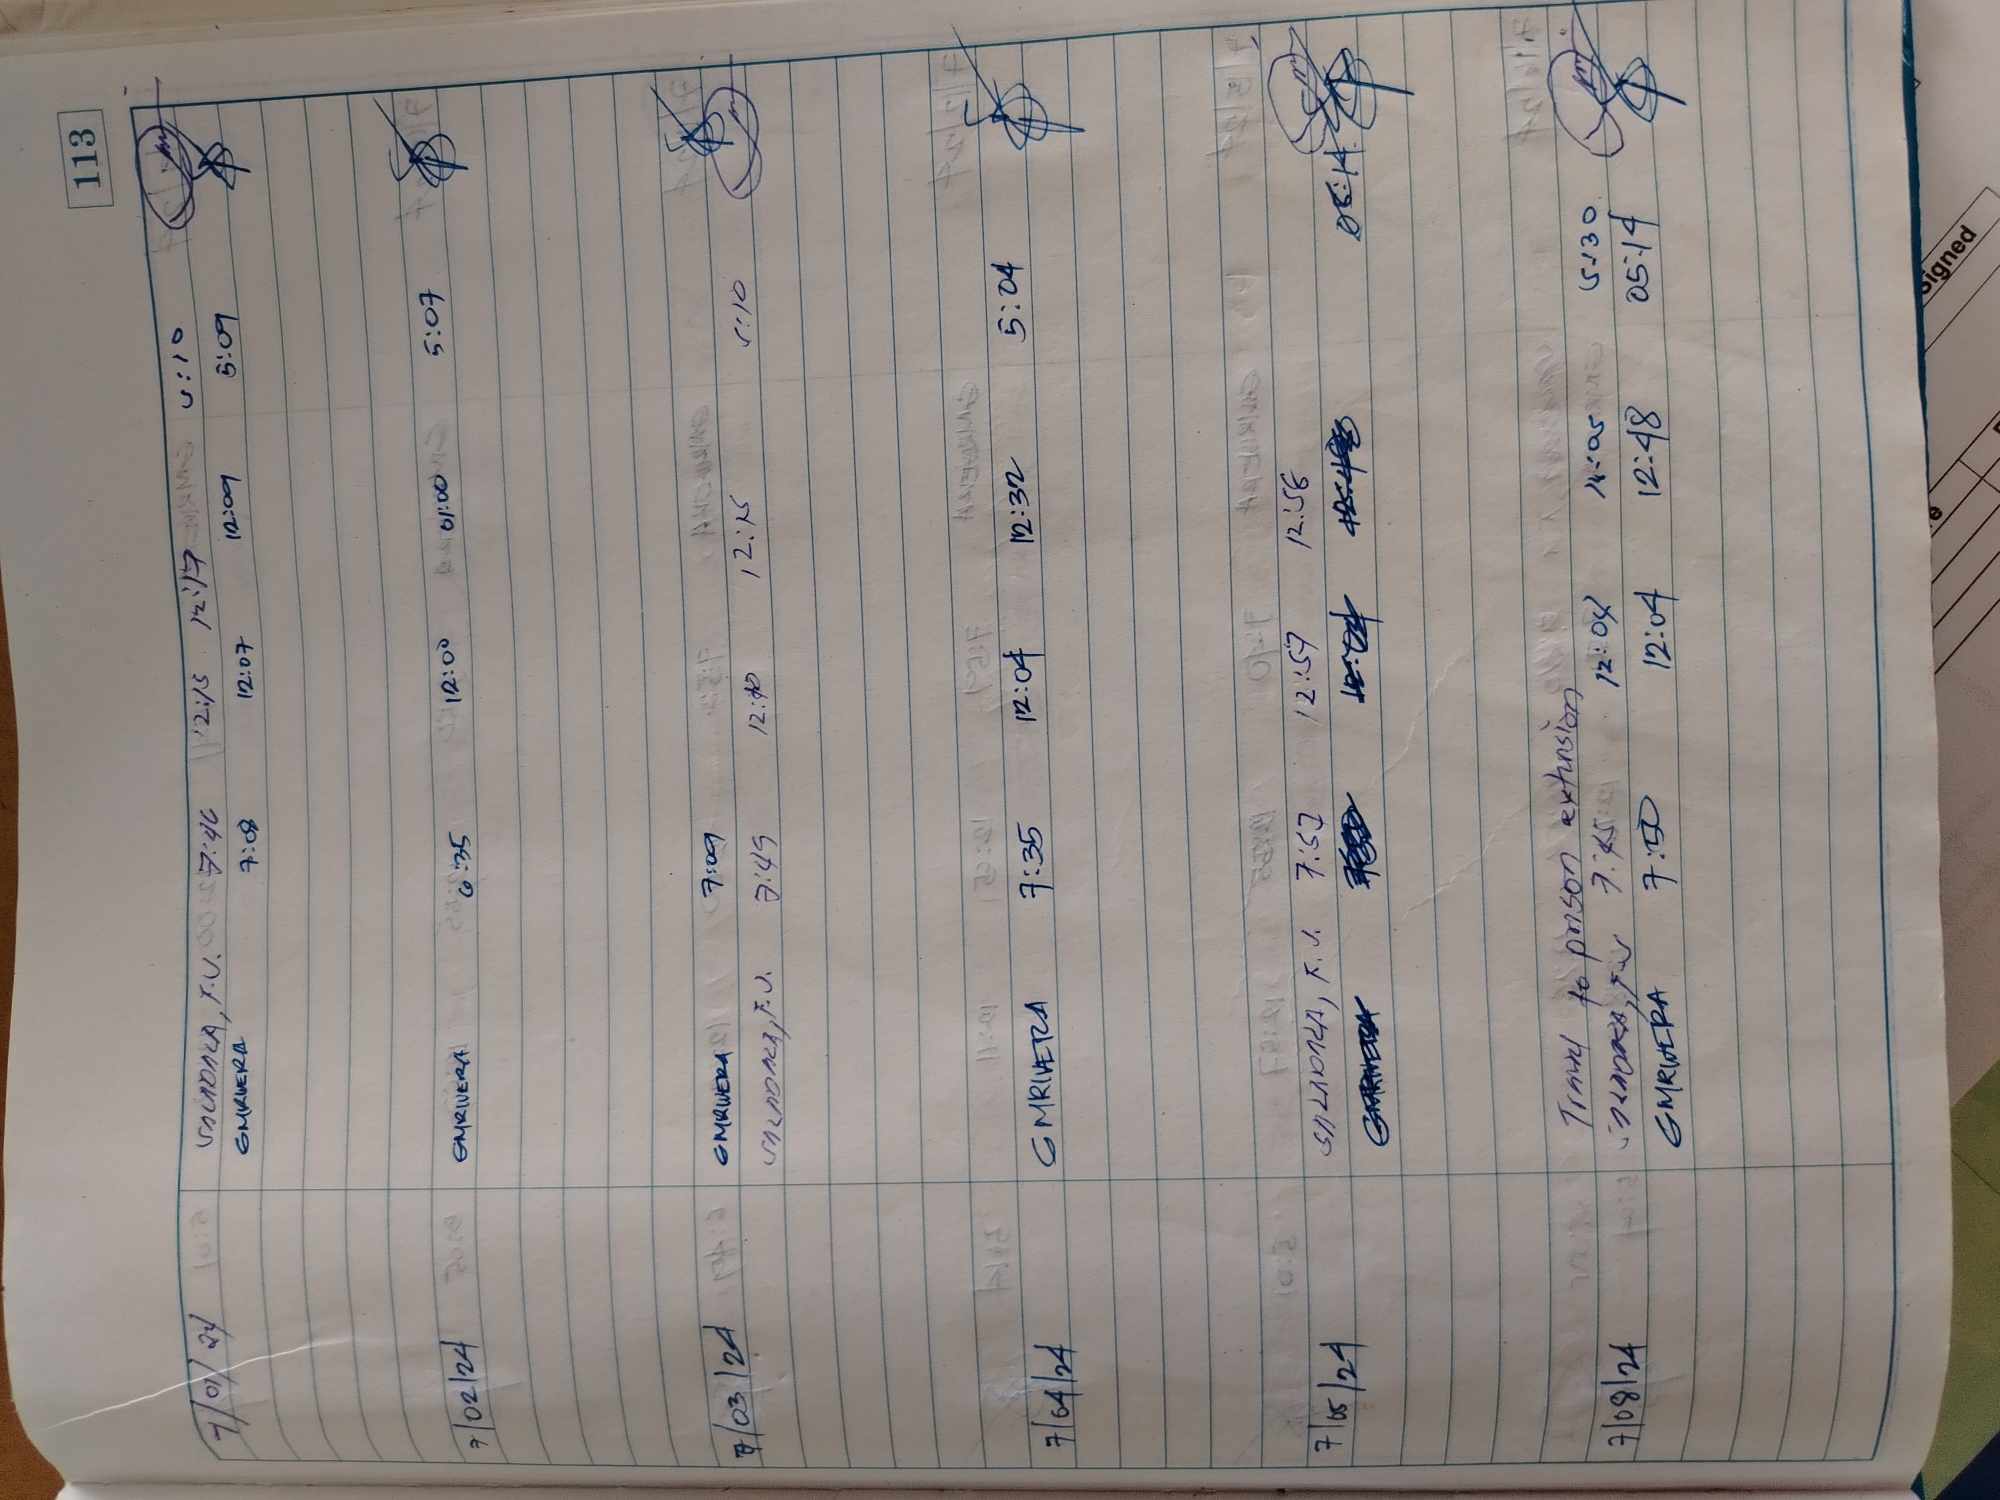 113
7/01/24 7:46 12:15 12:17 5:10
GMRIVERA 7:08 12:07 12:09 5:09
7/02/24 GMRIVERA 6:35 12:00 01:00 5:07
7/03/24 GMRIVERA 7:09
F.V. 7:49 12:10 12:15 5:10
7/04/24 GMRIVERA 7:35 12:04 12:32 5:04
7/05/24 F.V. 7:57 12:57 12:58
GMRIVERA 12:04 05:14
Travel to prison extension
7:45 12:04 5:30
7/08/24 GMRIVERA 7:50 12:04 12:48 05:14
signed